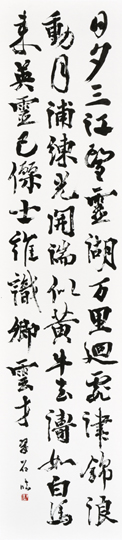 日夕三江望靈潮万里迴霞津錦浪
動月浦練光開湍似黄牛去濤如白馬
来英靈已傑士誰識卿雲才